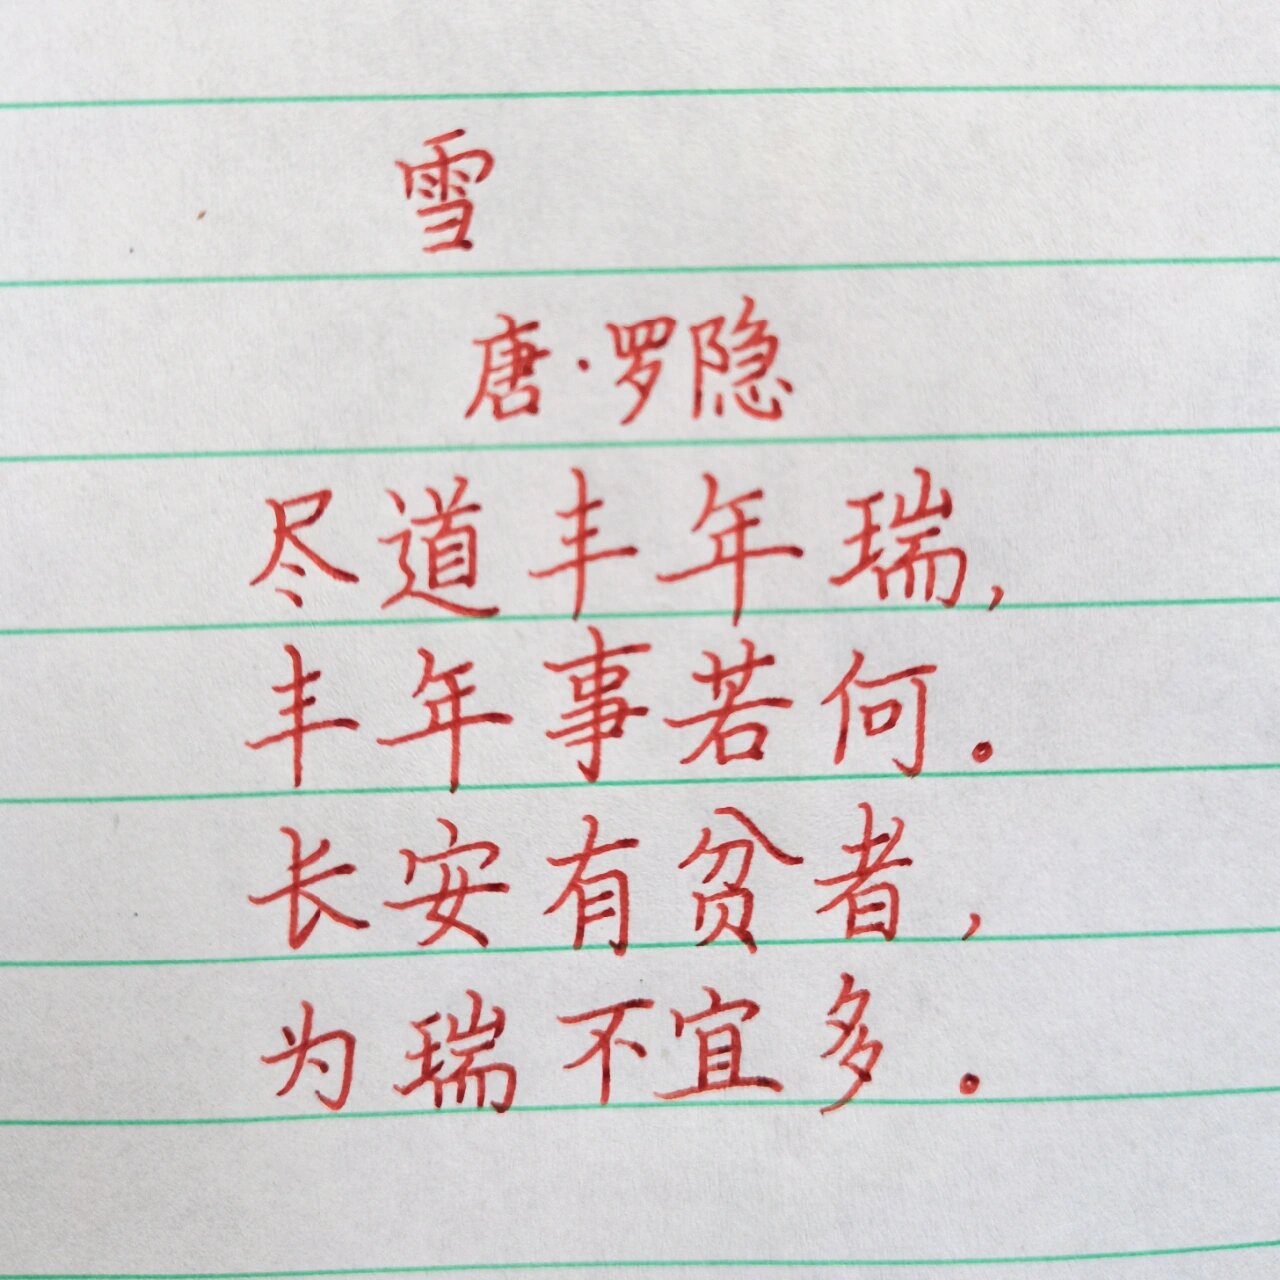 雪
唐·罗隐
尽道丰年瑞,
丰年事若何.
长安有贫者,
为瑞不宜多.